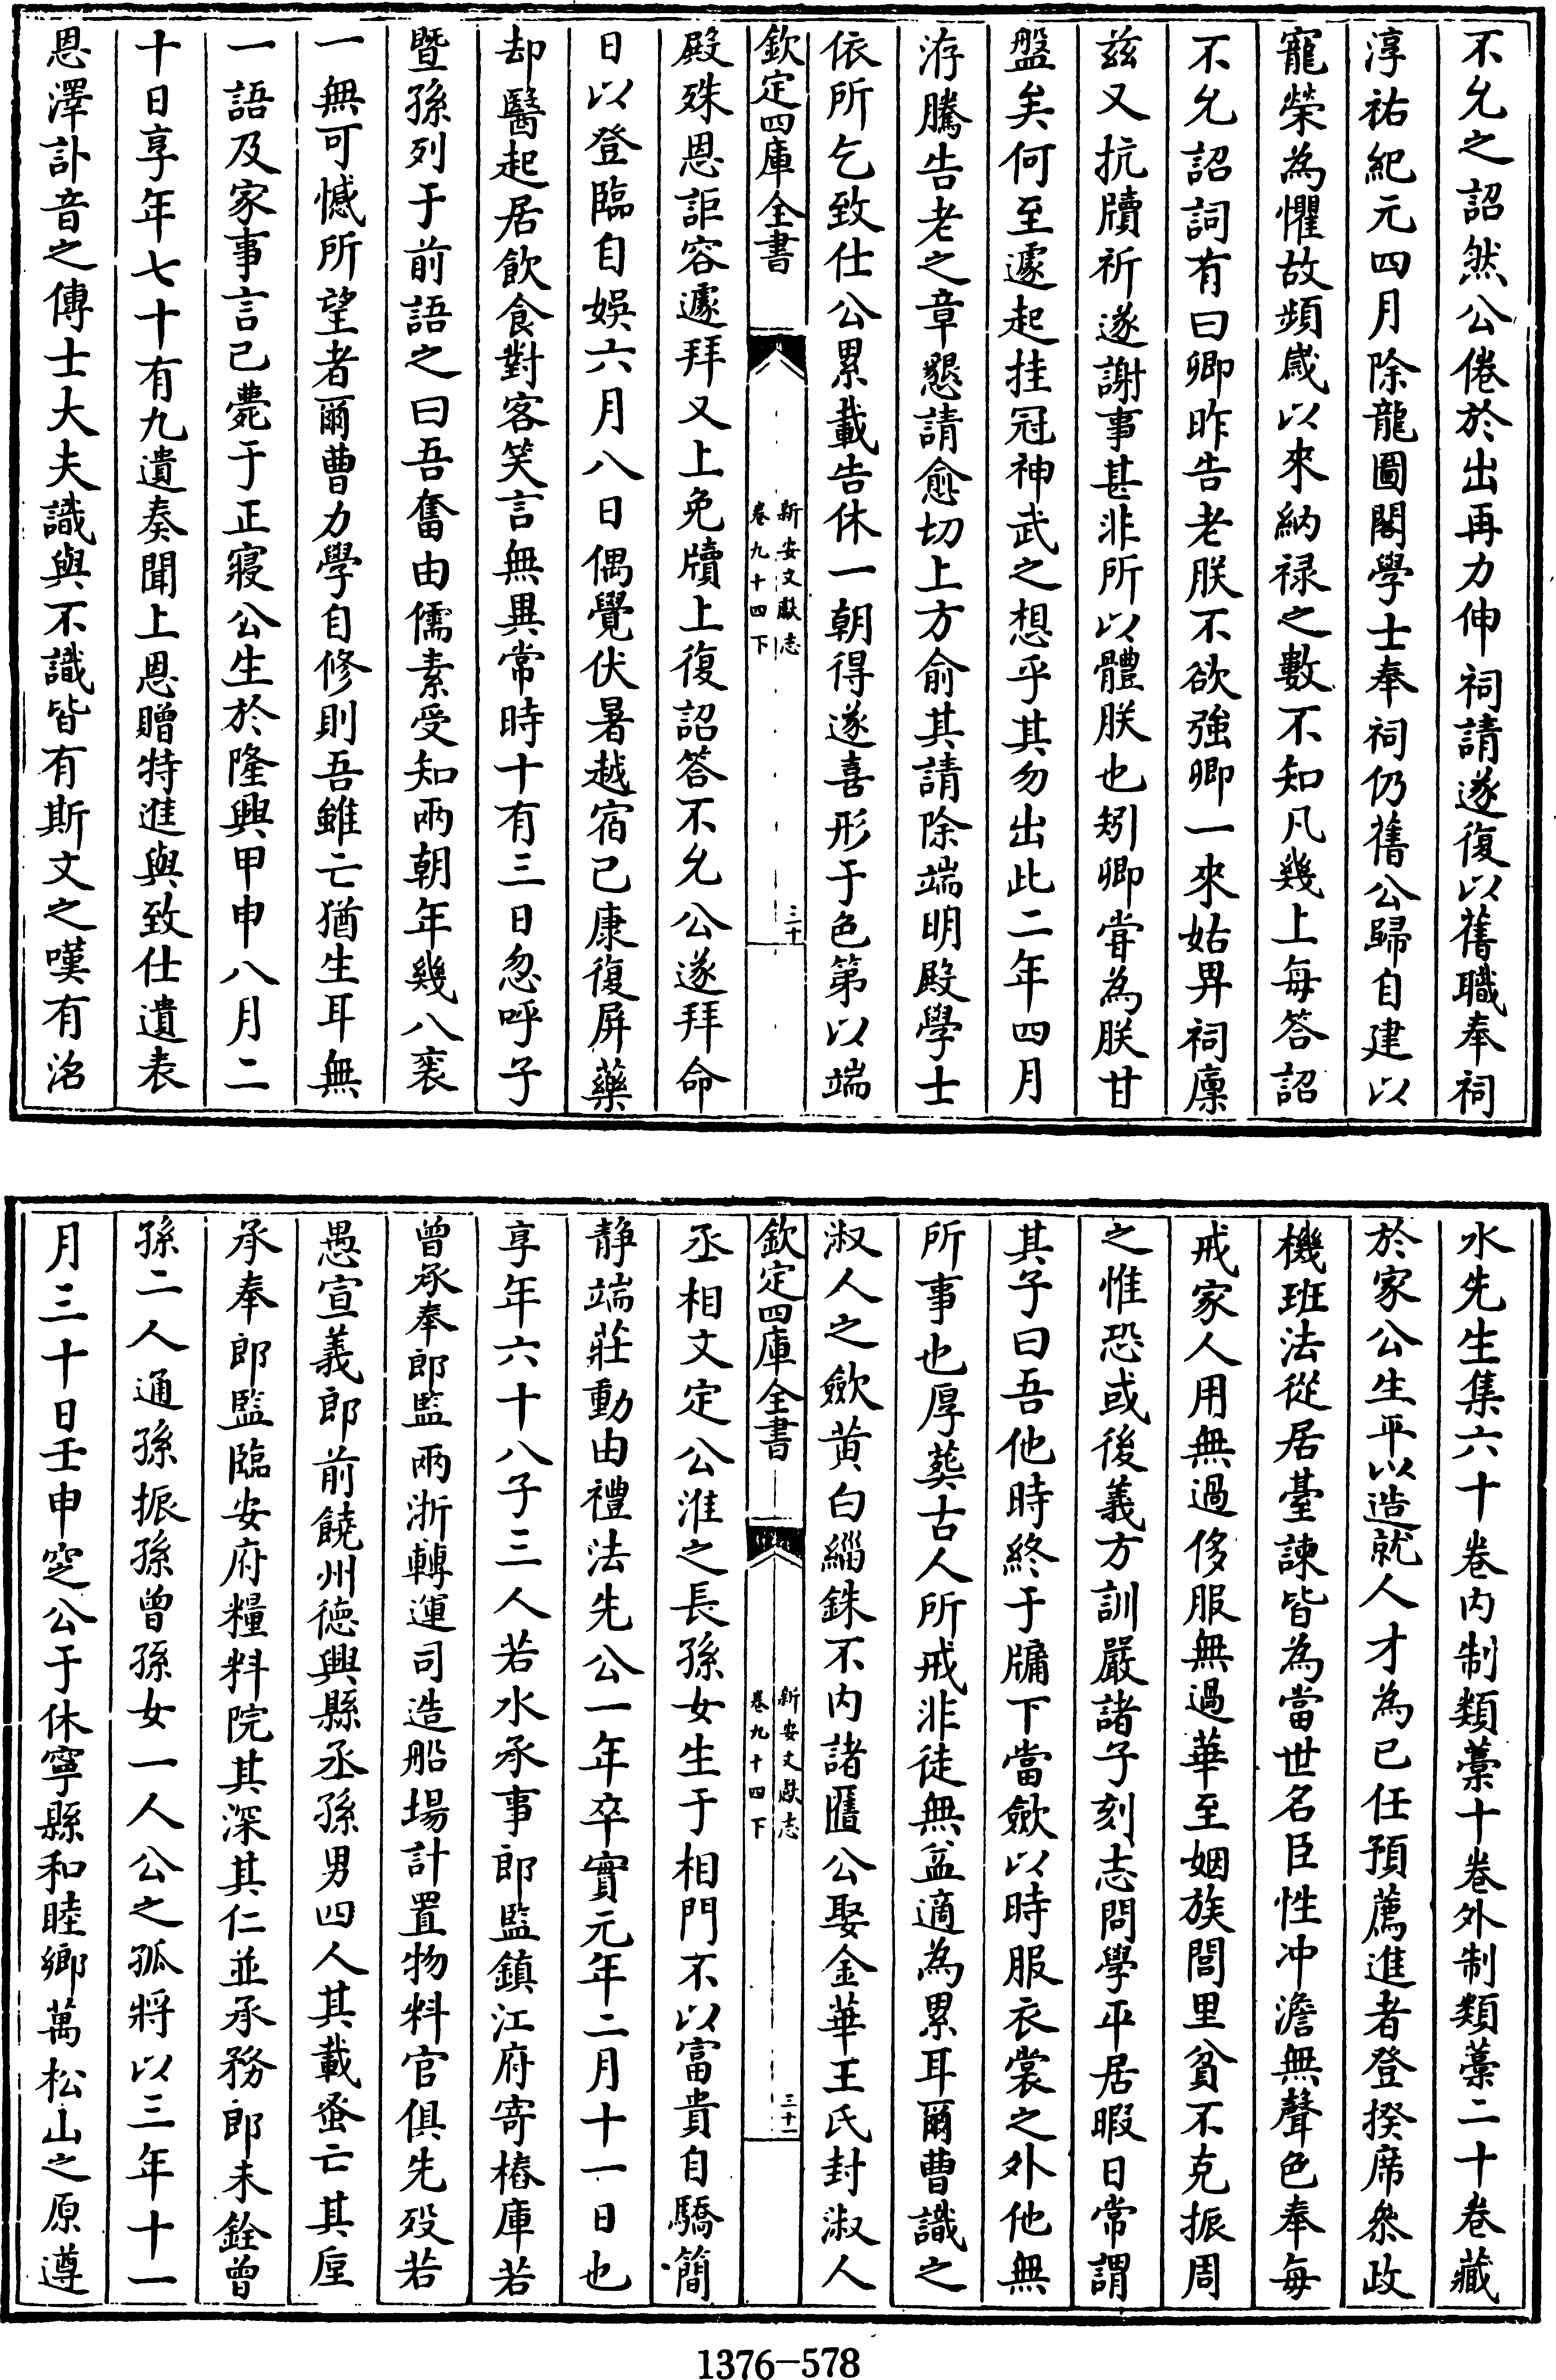 不允之詔然公倦於出再力伸祠請遂復以舊職奉祠
淳祐紀元四月除龍圖閣學士奉祠仍舊公歸自建以
寵榮為懼故頻歲以來納禄之數不知凡幾上每答詔
不允詔詞有曰卿昨告老朕不欲強卿一來姑畀祠廩
兹又抗牘祈遂謝事甚非所以體朕也矧卿甞為朕甘
盤矣何至遽起挂冠神武之想乎其勿出此二年四月
洊騰告老之章懇請愈切上方俞其請除端明殿學士
依所乞致仕公累載告休一朝得遂喜形于色第以端
欽定四庫全書
新安文獻志
卷九十四下
三十
殿殊恩詎容遽拜又上免牘上復詔答不允公遂拜命
日以登臨自娛六月八日偶覺伏暑越宿已康復屏藥
却醫起居飲食對客笑言無異常時十有三日忽呼子
暨孫列于前語之曰吾奮由儒素受知兩朝年幾八袠
一無可憾所望者爾曹力學自修則吾雖亡猶生耳無
一語及家事言已薨于正寢公生於隆興甲申八月二
十日享年七十有九遺奏聞上恩贈特進與致仕遺表
恩澤訃音之傳士大夫識與不識皆有斯文之嘆有洺
水先生集六十卷内制類藁十卷外制類藁二十卷藏
於家公生平以造就人才為已任預薦進者登揆席叅政
機班法從居臺諫皆為當世名臣性冲澹無聲色奉每
戒家人用無過侈服無過華至姻族閭里貧不克振周
之惟恐或後義方訓嚴諸子刻志問學平居暇日常謂
其子曰吾他時終于牖下當歛以時服衣裳之外他無
所事也厚葬古人所戒非徒無益適為累耳爾曹識之
淑人之歛黄白緇銖不内諸匶公娶金華王氏封淑人
欽定四庫全書
新安文獻志
卷九十四下
三十一
丞相文定公淮之長孫女生于相門不以富貴自驕簡
靜端莊動由禮法先公一年卒實元年二月十一日也
享年六十八子三人若水承事郎監鎮江府寄樁庫若
曾承奉郎監兩浙轉運司造船場計置物料官俱先歿若
愚宣義郎前饒州德興縣丞孫男四人其載蚤亡其厓
承奉郎監臨安府糧料院其深其仁並承務郎未銓曾
孫二人通孫振孫曾孫女一人公之孤將以三年十一
月三十日壬申窆公于休寧縣和睦鄉萬松山之原遵
1376-578